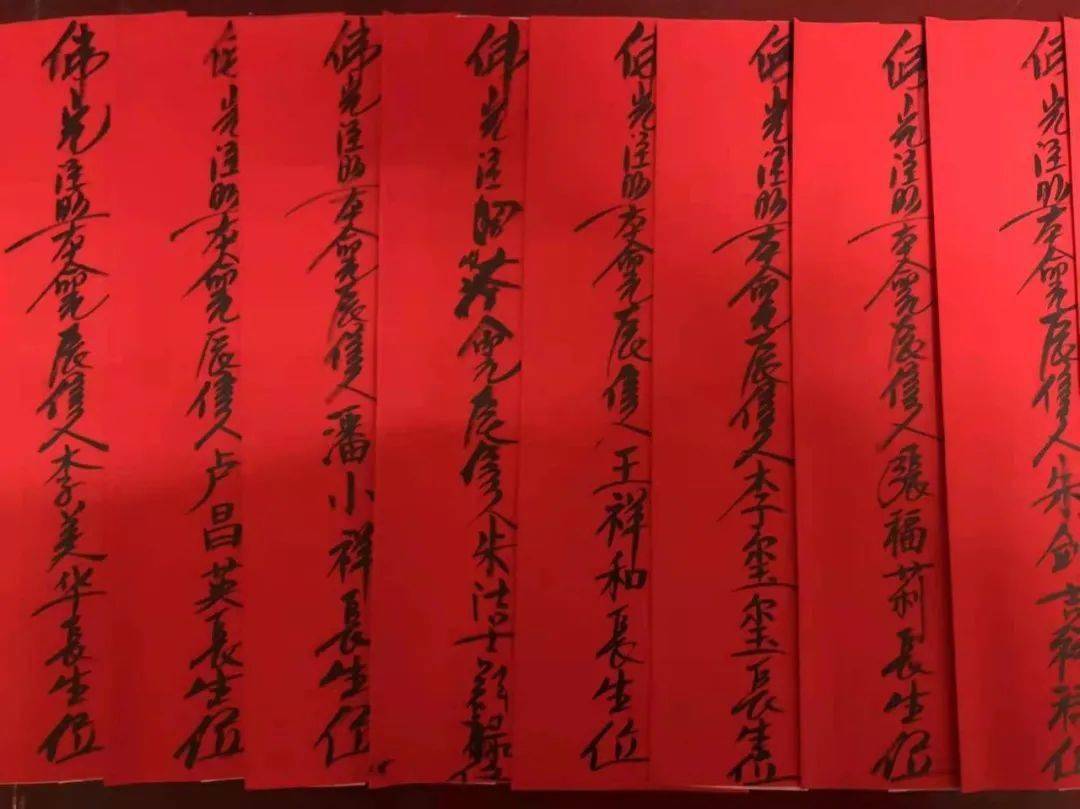 佛光注照本命元辰信人李美华長生位
佛光注照本命元辰信人卢昌英長生位
佛光注照本命元辰信人潘小祥長生位
佛光注照命元辰信人朱洁
佛光注照本命元辰信人王祥和長生位
佛光注照本命元辰信人李玺玺長生位
佛光注照本命元辰信人張福莉長生位
佛光注照本命元辰信人朱剑位